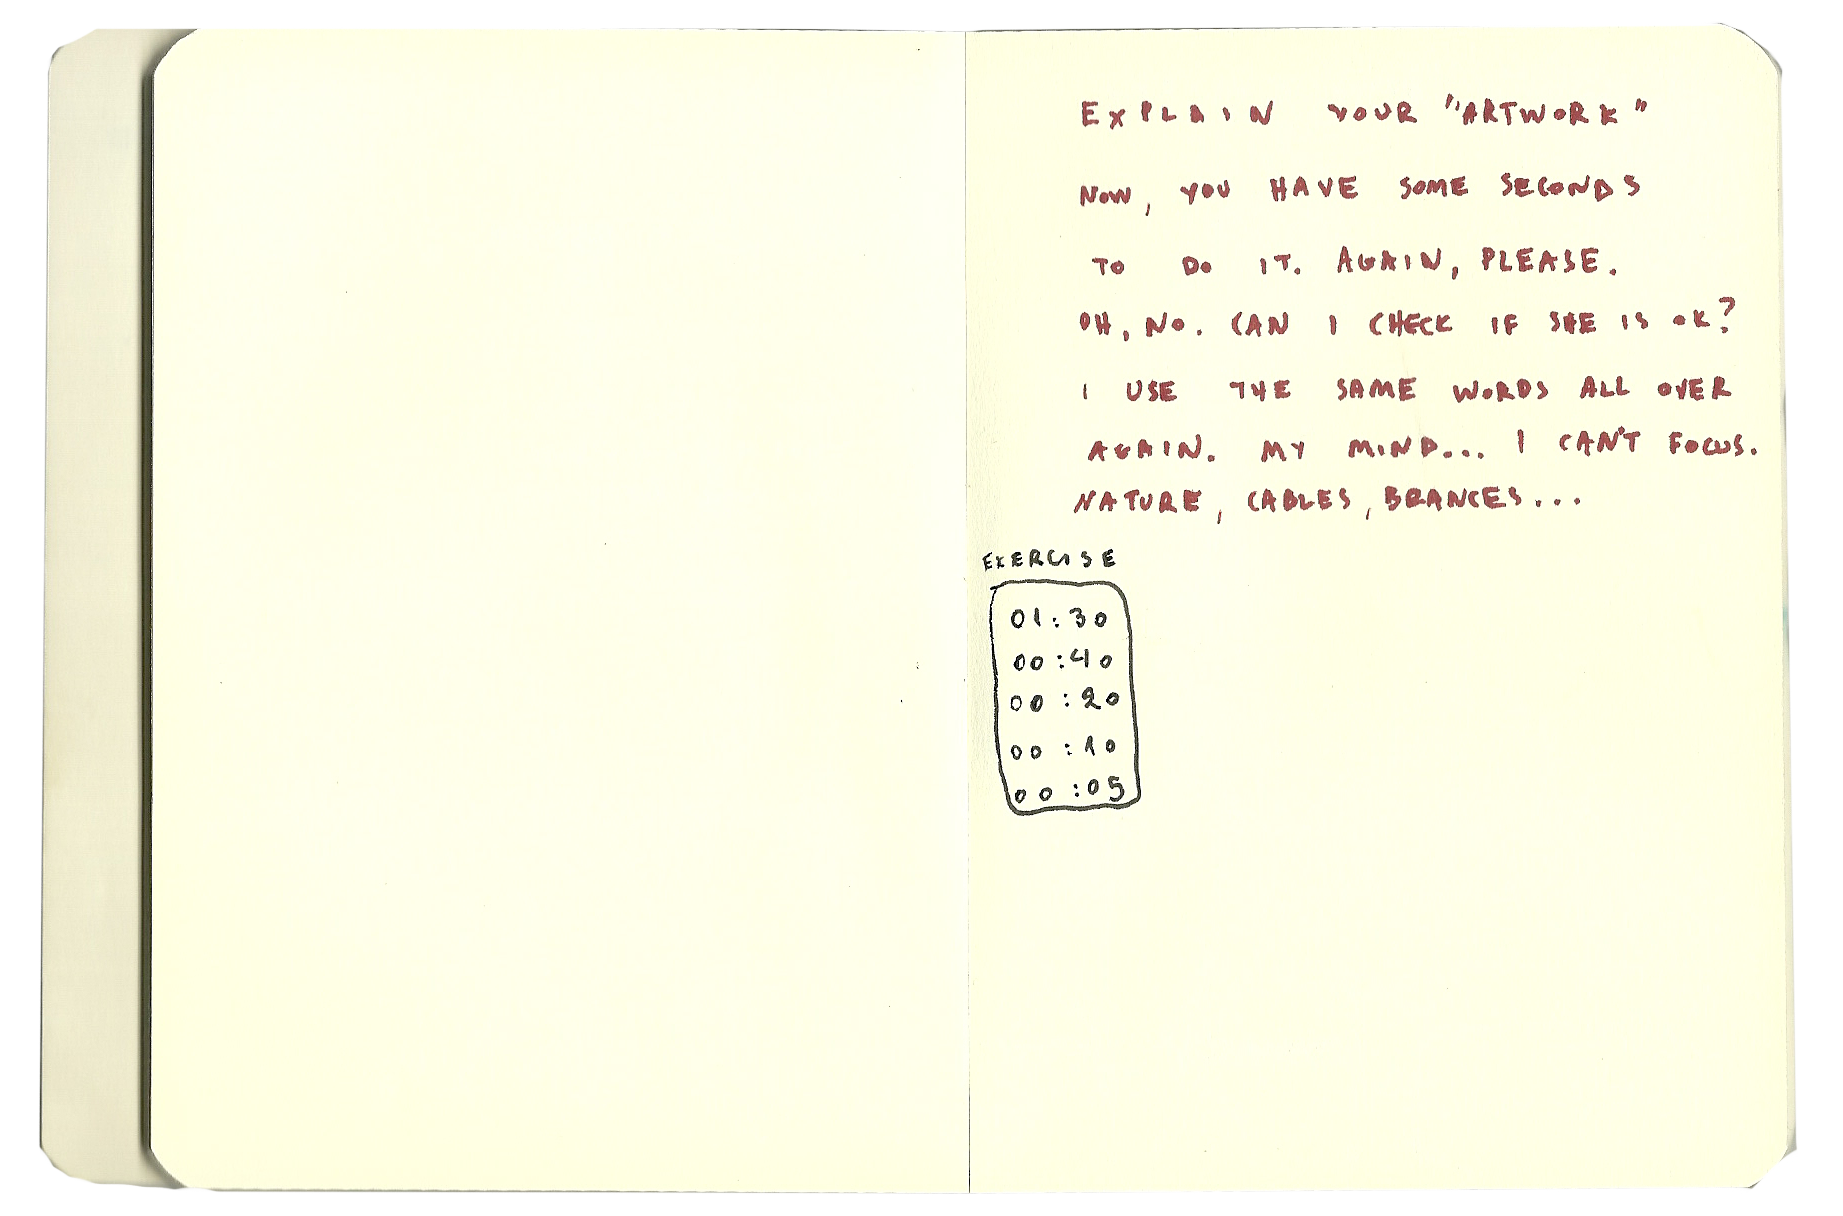 EXPLAIN YOUR "ARTWORK"
NOW, YOU HAVE SOME SECONDS
TO DO IT. AGAIN, PLEASE.
OH, NO. CAN I CHECK IF SHE IS OK?
I USE THE SAME WORDS ALL OVER
AGAIN. MY MIND... I CAN'T FOCUS.
NATURE, CABLES, BRANCES...
EXERCISE
01:30
00:40
00:20
00:10
00:05